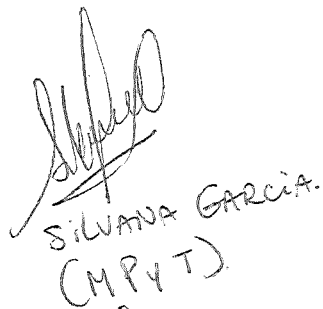 SILVANA GARCIA.
(MPyT).